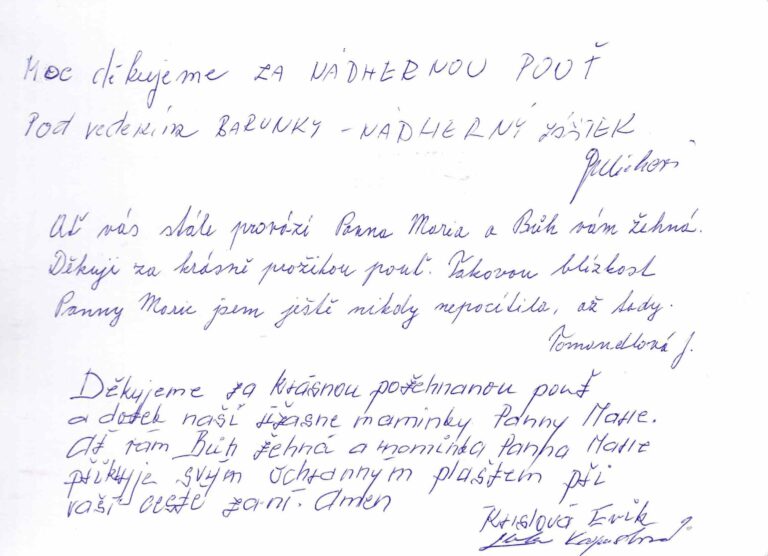 Moc děkujeme ZA NÁDHERNOU POUŤ
Pod vedením BARUNKY - NÁDHERNÝ ZÁŽITEK
Ať vás stále provází Panna Maria a Bůh vám žehná.
Děkuji za krásně prožitou pouť. Takovou blízkost
Panny Marie jsem ještě nikdy nepocítila, až tady.
Tomandlová J.
Děkujeme za krásnou požehnanou pouť
a dotek naší úžasne maminky Panny Marie.
Ať vám Bůh žehná a maminka Panna Marie
přikryje svým ochranným plaštem při
vaší cestě za ní. Amen
Krislová Evik